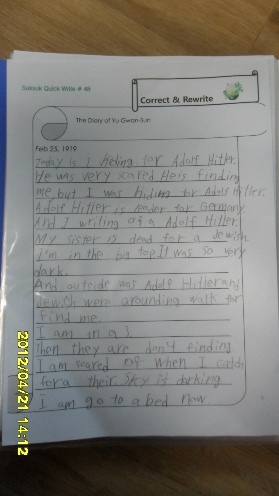 Sussuk Quick Write # 48
Correct & Rewrite
The Diary of Yu Gwan-Sun
Feb 25, 1919
Today is I heding for Adolf Hitler.
He was very scared. He is finding
me but I was hiding for Adolf Hitler.
Adolf Hitler is leader for Germany
And I writing of a Adolf Hitler.
My sister is dead for a Jewish.
I'm in the big top. It was so very
dark.
And outside was Adolf Hitler and
Jewish were arounding walk for
find me.
I am in a
Then they are don't finding
I am scared of when I catch
for a their. Sky is darking
I am go to a bed now
2012/04/21 14:12